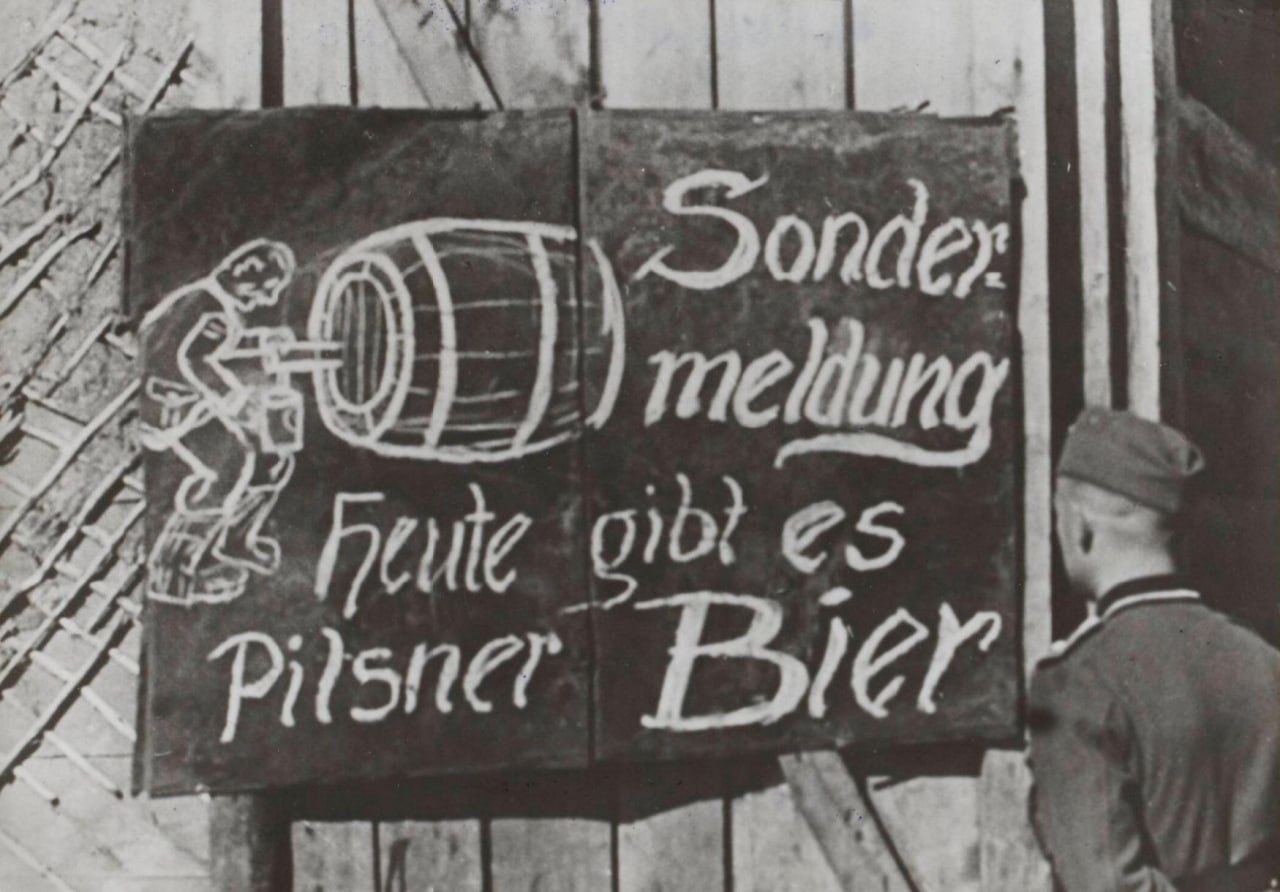 Sonder-
meldung
Heute gibt es
Pilsner Bier